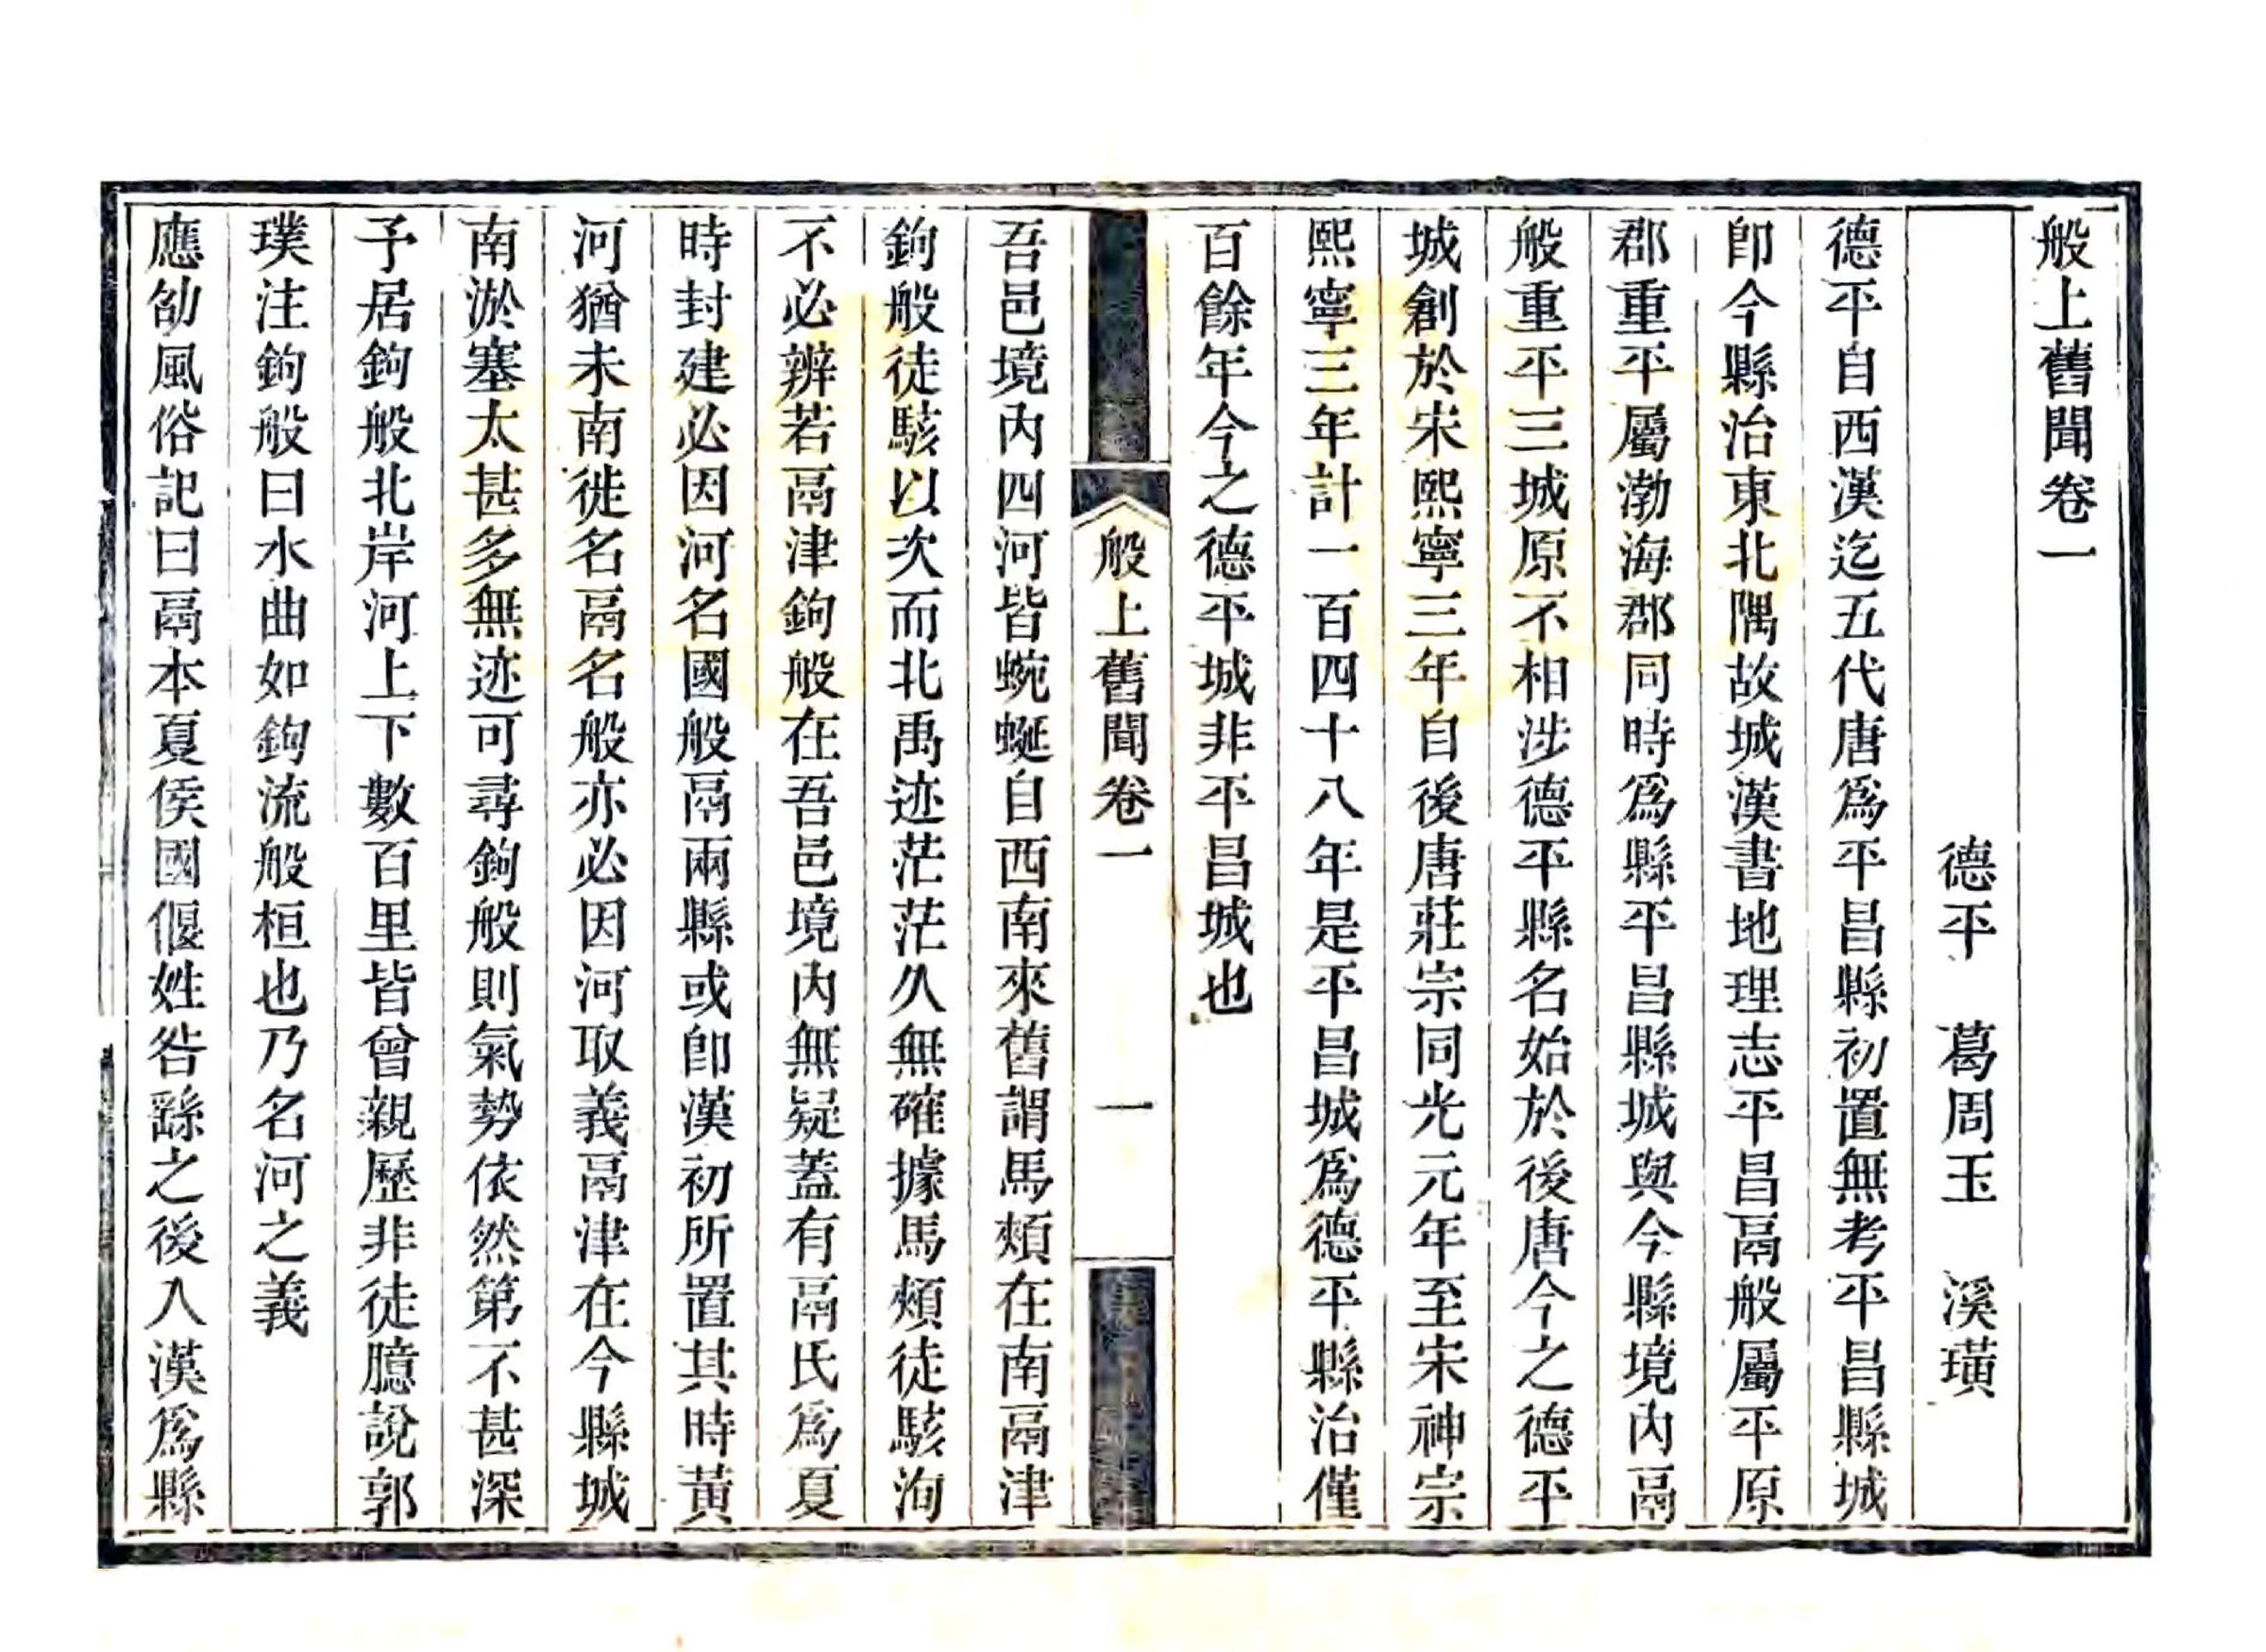 般上舊聞卷一
德平　葛周玉　溪璜
德平自西漢迄五代唐爲平昌縣初置無考平昌縣城
卽今縣治東北隅故城漢書地理志平昌鬲般屬平原
郡重平屬渤海郡同時爲縣平昌縣城與今縣境內鬲
般重平三城原不相涉德平縣名始於後唐今之德平
城創於宋熙寧三年自後唐莊宗同光元年至宋神宗
熙寧三年計一百四十八年是平昌城爲德平縣治僅
百餘年今之德平城非平昌城也
般上舊聞卷一　一
吾邑境內四河皆蜿蜒自西南來舊謂馬頰在南鬲津
鉤般徒駭以次而北禹迹茫茫久無確據馬頰徒駭洵
不必辨若鬲津鉤般在吾邑境內無疑蓋有鬲氏爲夏
時封建必因河名國般鬲兩縣或卽漢初所置其時黃
河猶未南徙名鬲名般亦必因河取義鬲津在今縣城
南淤塞太甚多無迹可尋鉤般則氣勢依然第不甚深
予居鉤般北岸河上下數百里皆曾親歷非徒臆說郭
璞注鉤般曰水曲如鉤流般桓也乃名河之義
應劭風俗記曰鬲本夏侯國偃姓咎繇之後入漢爲縣